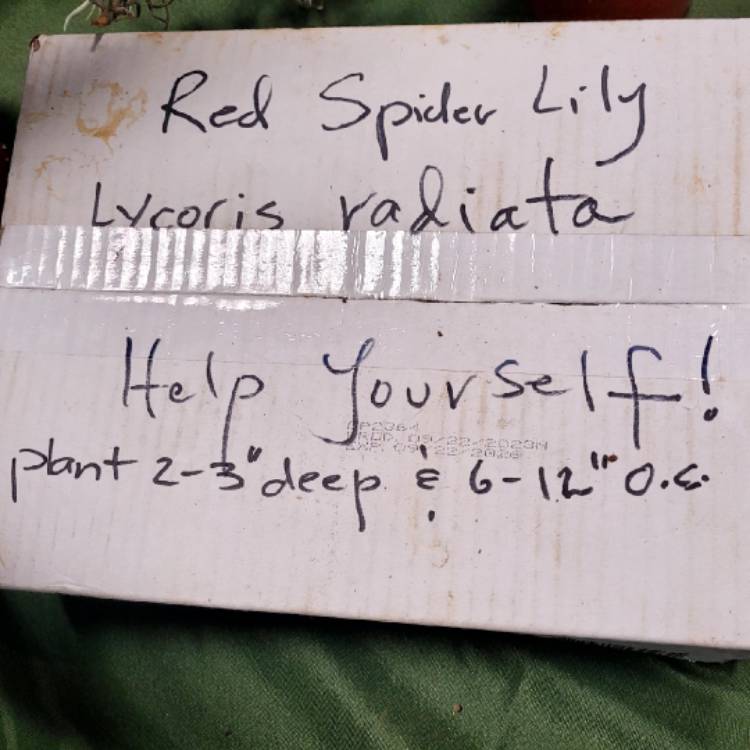 Red Spider Lily
Lycoris radiata
Help Yourself!
plant 2-3" deep & 6-12" O.C.
PROD. 09/22/2023N